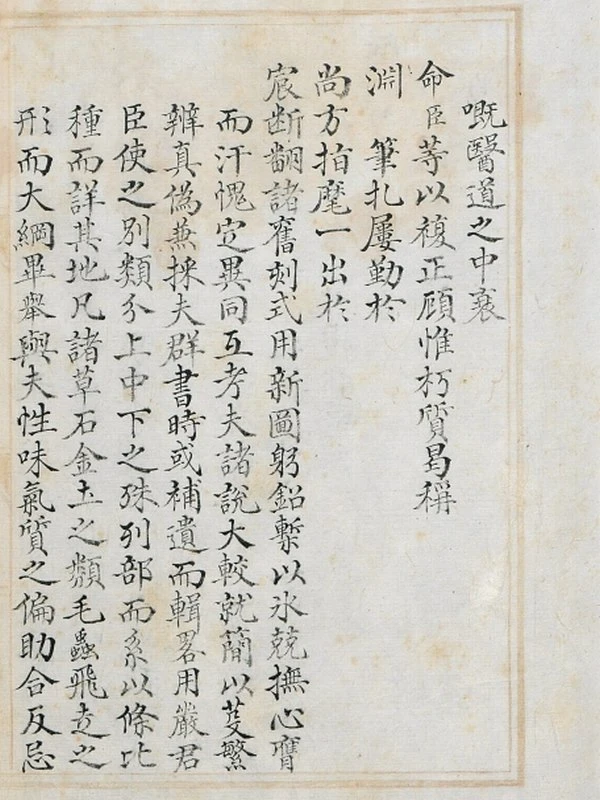 嘅醫道之中衰
命臣等以複正顧惟朽質曷稱
淵 筆扎屢勤於
尚方指麾一出於
宸断翻諸舊刻式用新圖躬鉛槧以氷兢撫心膺
而汗愧定異同互考夫諸說大較就簡以芟繁
辨真偽兼採夫群書時或補遺而輯畧用嚴君
臣使之別類分上中下之殊列部而系以條比
種而詳其地凡諸草石金土之類毛蟲飛走之
形而大綱畢舉與夫性味氣質之偏助合反忌